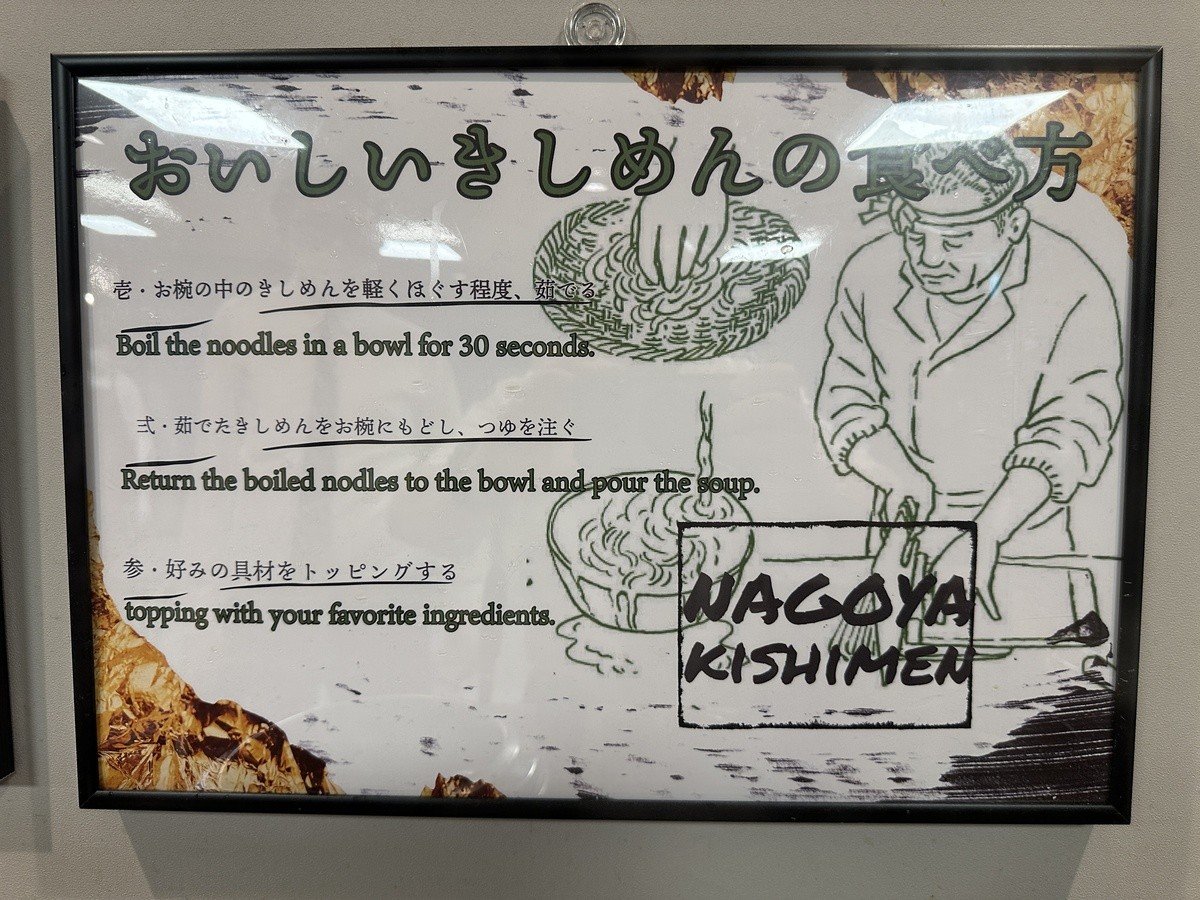 おいしいきしめんの食べ方
壱・お椀の中のきしめんを軽くほぐす程度、茹でる
Boil the noodles in a bowl for 30 seconds.
弐・茹でたきしめんをお椀にもどし、つゆを注ぐ
Return the boiled nodles to the bowl and pour the soup.
参・好みの具材をトッピングする
topping with your favorite ingredients.
NAGOYA
KISHIMEN